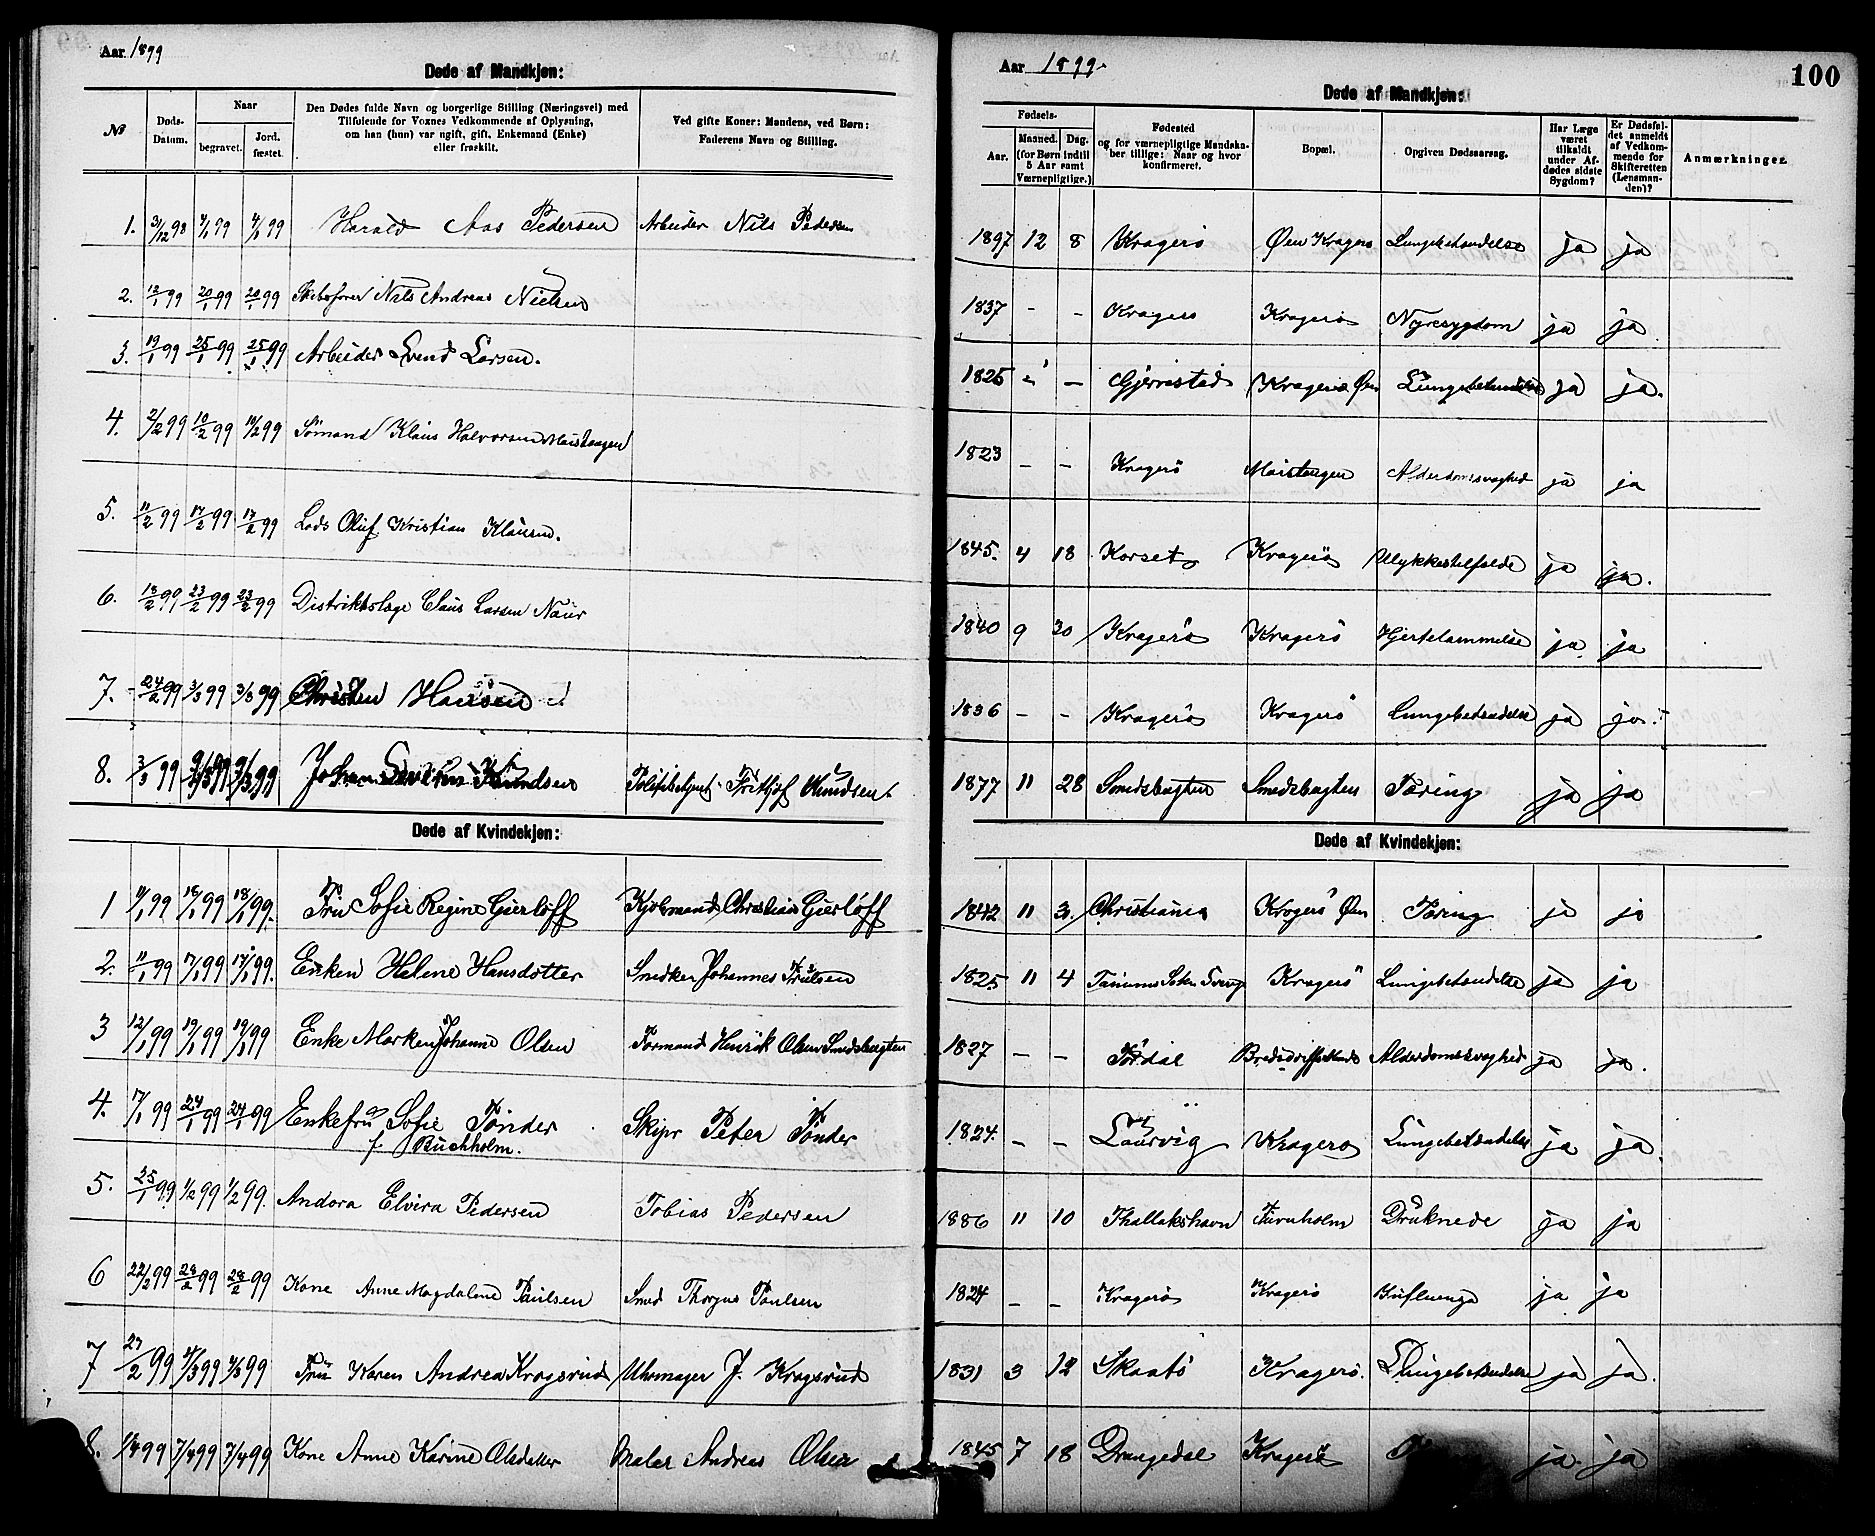 Aar 1899
Døde af Mandkjøn:
№
Døds-
Datum.
Naar
begravet.
Jord-
fæstet.
Den Dødes fulde Navn og borgerlige Stilling (Næringsvei) med
Tilføiende for Voxnes Vedkommende af Oplysning,
om han (hun) var ugift, gift, Enkemand (Enke)
eller fraskilt.
Ved gifte Koner: Mandens, ved Børn:
Faderens Navn og Stilling.
1. 31/12 98 4/1 99 4/1 99 Harald Aas Pedersen Arbeider Nils Pedersen
2. 13/1 99 20/1 99 20/1 99 Skibsfører Nils Andreas Nielsen
3. 19/1 99 25/1 99 25/1 99 Arbeider Svend Larsen.
4. 2/2 99 10/2 99 10/2 99 Sømand Klaus Halvorsen Maistangen
5. 11/2 99 17/2 99 17/2 99 Lods Oluf Kristian Klausen.
6. 18/2 99 23/2 99 23/2 99 Distriktslæge Claus Larsen Naur
7. 24/2 99 3/3 99 3/3 99 Christen Hansen
8. 3/3 99 9/3 99 9/3 99 Johan Knudsen Politibetjent Fritjof Knudsen.
Døde af Kvindekjøn:
1 11/1 99 18/1 99 18/1 99. Fru Sofie Regine Gierløff Kjøbmand Christian Gierløff
2. 11/1 99 17/1 99 17/1 99. Enken Helene Hansdotter Snedker Johannes Trulsen
3 12/1 99 19/1 99 19/1 99 Enke Maren Johanne Olsen Formand Henrik Olsen Smedsbugten
4. 17/1 99 24/1 99 24/1 99 Enkefru Sofie Tønder Skipr Peter Tønder
f. Buchholm.
5. 25/1 99 1/2 99 1/2 99. Andora Elvira Pedersen Tobias Pedersen
6 22/2 99 28/2 99 28/2 99 Kone Anne Magdalene Paulsen Smed Paulsen
7 27/2 99 4/3 99 4/3 99 Fru Karen Andrea Kragsrud Uhrmager J. Kragsrud
8. 99 7/4 99 7/4 99 Kone Anne Karine Olsdatter Maler Andreas Olsen
Aar 1899.
100
Døde af Mandkjøn:
Fødsels-
Aar.
Maaned. Dag.
(for Børn indtil
5 Aar samt
Værnepligtige.)
Fødested
og for værnepligtige Mandska-
ber tillige: Naar og hvor
konfirmeret.
Bopæl.
Opgiven Dødsaarsag.
Har Læge
været
tilkaldt
under Af-
dødes sidste
Sygdom?
Er Dødsfal-
det anmeldt
af Vedkom-
mende for
Skifteretten
(Lensman-
den)?
Anmærkninger.
1897 12 8 Kragerø Øen Kragerø Lungebetændelse ja ja
1837 - - Kragerø Kragerø Nyresygdom ja ja.
1825 - — Gjerrestad Kragerø Øen Lungebetændelse ja ja.
1823 — — Kragerø Maistangen Alderdomssvaghed ja ja
1845. 4 18 Korset Kragerø Ulykkestilfælde ja ja.
1840 9 30 Kragerø Kragerø Hjertelammelse ja. ja
1836 — — Kragerø Kragerø Lungebetændelse ja ja.
1877 11 28 Smedsbugten Smedsbugten Tæring ja ja
Døde af Kvindekjøn:
1842 11 3. Christiania Kragerø Øen Tæring ja ja
1825 11 4 Tanums Sokn Kragerø Lungebetændelse ja ja
1827 — — Tørdal Alderdomssvaghed ja ja.
1824. — — Laurvig Kragerø Lungebetændelse ja ja.
1886 11 10 Thallakshavn Furuholm Druknede ja ja
1824 — — Kragerø Kragerø Influenza ja ja
1831 3 12 Skaatø Kragerø. Lungebetændelse ja ja.
1845 7 18 Drangedal Kragerø ja. ja